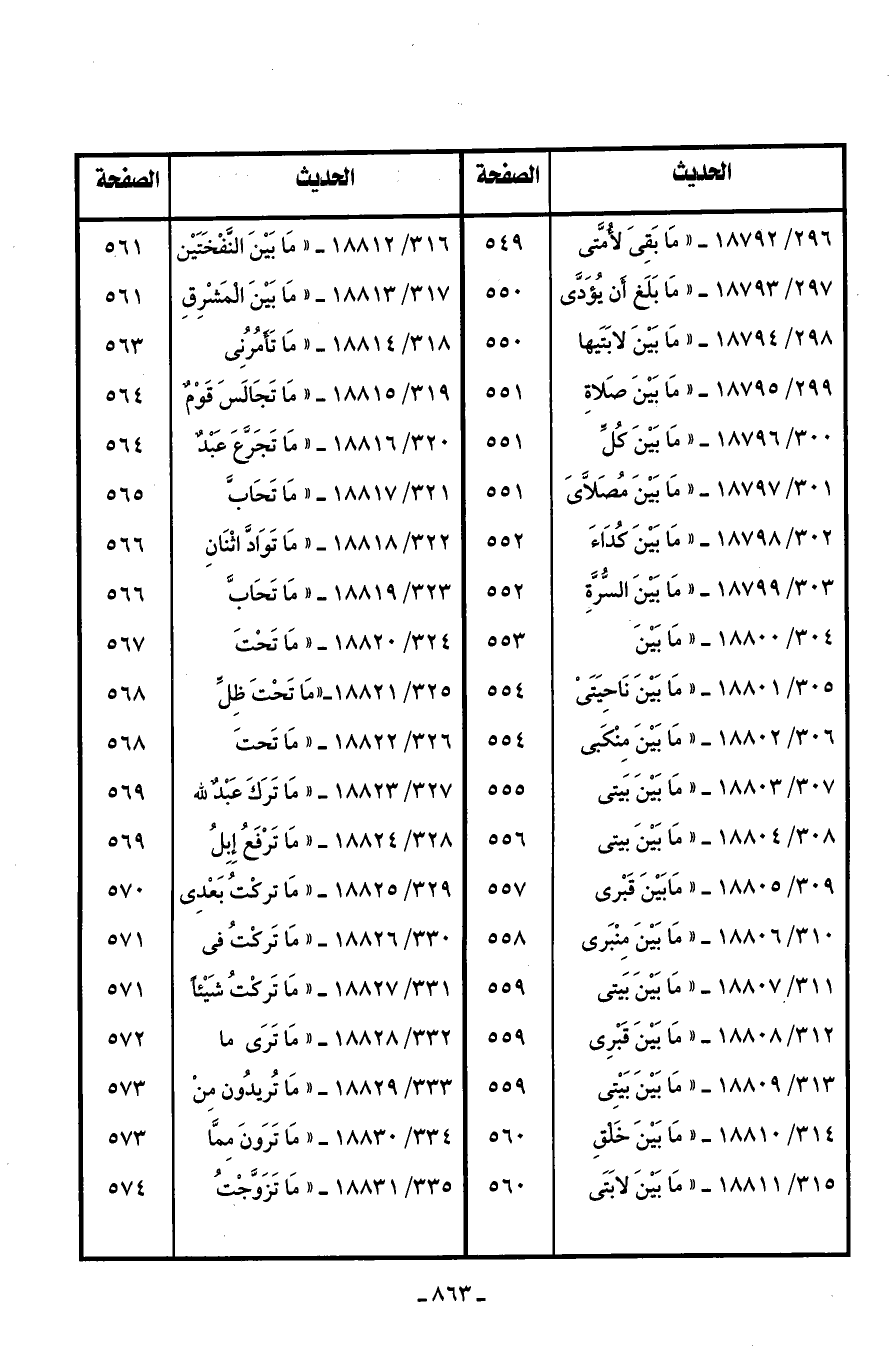 الحديث الصفحة الحديث الصفحة
٢٩٦/ ١٨٧٩٢ ـ « مَا بَقِىَ لأُمَّتى ٥٤٩ ٣١٦/ ١٨٨١٢ ـ « مَا بَيْنَ النَّفْخَتَيْن ٥٦١
٢٩٧/ ١٨٧٩٣ ـ « مَا بَلَغ أَن يُؤَدَّى ٥٥٠ ٣١٧/ ١٨٨١٣ ـ « مَا بَيْنَ الْمَشْرِقِ ٥٦١
٢٩٨/ ١٨٧٩٤ ـ « مَا بَيْنَ لابَتَيها ٥٥٠ ٣١٨/ ١٨٨١٤ ـ « مَا تَأمُرُنِى ٥٦٣
٢٩٩/ ١٨٧٩٥ ـ « مَا بَيْنَ صَلاةِ ٥٥١ ٣١٩/ ١٨٨١٥ ـ « مَا تَجَالَسَ قَوْمٌ ٥٦٤
٣٠٠/ ١٨٧٩٦ ـ « مَا بَيْنَ كُلِّ ٥٥١ ٣٢٠/ ١٨٨١٦ ـ « مَا تَجَرَّعَ عَبْدٌ ٥٦٤
٣٠١/ ١٨٧٩٧ ـ « مَا بَيْنَ مُصَلاَّىَ ٥٥١ ٣٢١/ ١٨٨١٧ ـ « مَا تَحَابَّ ٥٦٥
٣٠٢/ ١٨٧٩٨ ـ « مَا بَيْنَ كُدَاءَ ٥٥٢ ٣٢٢/ ١٨٨١٨ ـ « مَا تَوَادَّ اثْنَانِ ٥٦٦
٣٠٣/ ١٨٧٩٩ ـ « مَا بَيْنَ السُّرَّةِ ٥٥٢ ٣٢٣/ ١٨٨١٩ ـ « مَا تَحَابَّ ٥٦٦
٣٠٤/ ١٨٨٠٠ ـ « مَا بَيْنَ ٥٥٣ ٣٢٤/ ١٨٨٢٠ ـ « مَا تَحْتَ ٥٦٧
٣٠٥/ ١٨٨٠١ ـ « مَا بَيْنَ نَاحِيَتَىْ ٥٥٤ ٣٢٥/ ١٨٨٢١ـ«مَا تَحْتَ ظِلِّ ٥٦٨
٣٠٦/ ١٨٨٠٢ ـ « مَا بَيْنَ مِنْكَبى ٥٥٤ ٣٢٦/ ١٨٨٢٢ ـ « مَا تَحتَ ٥٦٨
٣٠٧/ ١٨٨٠٣ ـ « مَا بَيْنَ بَيتى ٥٥٥ ٣٢٧/ ١٨٨٢٣ ـ « مَا تَرَكَ عَبْدٌ لله ٥٦٩
٣٠٨/ ١٨٨٠٤ ـ « مَا بَيْنَ بيتى ٥٥٦ ٣٢٨/ ١٨٨٢٤ ـ « مَا تَرْفَعُ إِبِلُ ٥٦٩
٣٠٩/ ١٨٨٠٥ ـ « مَابَيْنَ قَبْرى ٥٥٧ ٣٢٩/ ١٨٨٢٥ ـ « مَا تركْتُ بَعْدِى ٥٧٠
٣١٠/ ١٨٨٠٦ ـ « مَا بَيْنَ مِنْبَرى ٥٥٨ ٣٣٠/ ١٨٨٢٦ ـ « مَا تَركْتُ فى ٥٧١
٣١١/ ١٨٨٠٧ ـ « مَا بَيْنَ بَيتى ٥٥٩ ٣٣١/ ١٨٨٢٧ ـ « مَا تَركْتُ شَيْئاً ٥٧١
٣١٢/ ١٨٨٠٨ ـ « مَا بَيْنَ قَبْرِى ٥٥٩ ٣٣٢/ ١٨٨٢٨ ـ « مَا تَرَى ما ٥٧٢
٣١٣/ ١٨٨٠٩ ـ « مَا بَيْنَ بَيْتِى ٥٥٩ ٣٣٣/ ١٨٨٢٩ ـ « مَا تُرِيدُون مِنْ ٥٧٣
٣١٤/ ١٨٨١٠ ـ « مَا بَيْنَ خَلْقِ ٥٦٠ ٣٣٤/ ١٨٨٣٠ ـ « مَا تَرَونَ مِمَّا ٥٧٣
٣١٥/ ١٨٨١١ ـ « مَا بَيْنَ لابَتَى ٥٦٠ ٣٣٥/ ١٨٨٣١ ـ « مَا تَزَوَّجْتُ ٥٧٤
ـ ٨٦٣ ـ